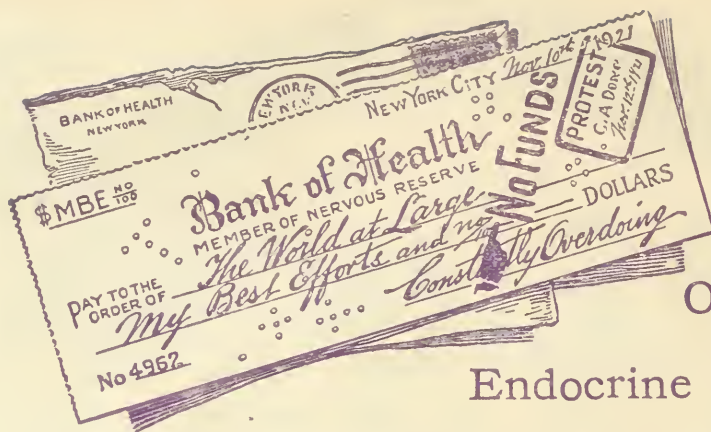 BANK OF HEALTH
NEW YORK
NEW YORK
N.Y.
NEW YORK CITY Nov. 10th 1921
NO FUNDS
PROTEST
Nov. 12th 1921
$ MBE NO/100
Bank of Health
MEMBER OF NERVOUS RESERVE
PAY TO THE
ORDER OF The World at Large
My Best Efforts and no/100 DOLLARS
No 4967. Constantly Overdoing
O
Endocrine